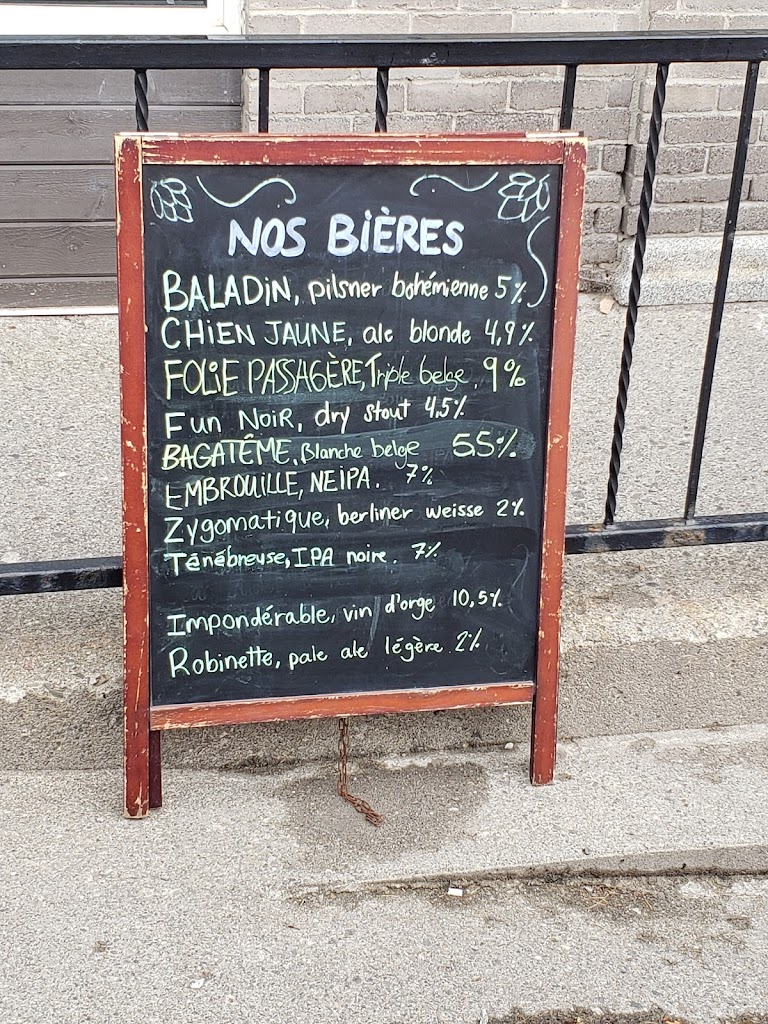 NOS BIÈRES
BALADIN, pilsner bohémienne 5%
CHIEN JAUNE, ale blonde 4,9%
FOLIE PASSAGÈRE, Triple belge, 9%
Fun Noir, dry stout 4.5%
BAGATÊME, Blanche belge 5.5%
EMBROUILLE, NEIPA. 7%
Zygomatique, berliner weisse 2%
Ténébreuse, IPA noire. 7%
Impondérable, vin d'orge 10,5%
Robinette, pale ale légère 2%